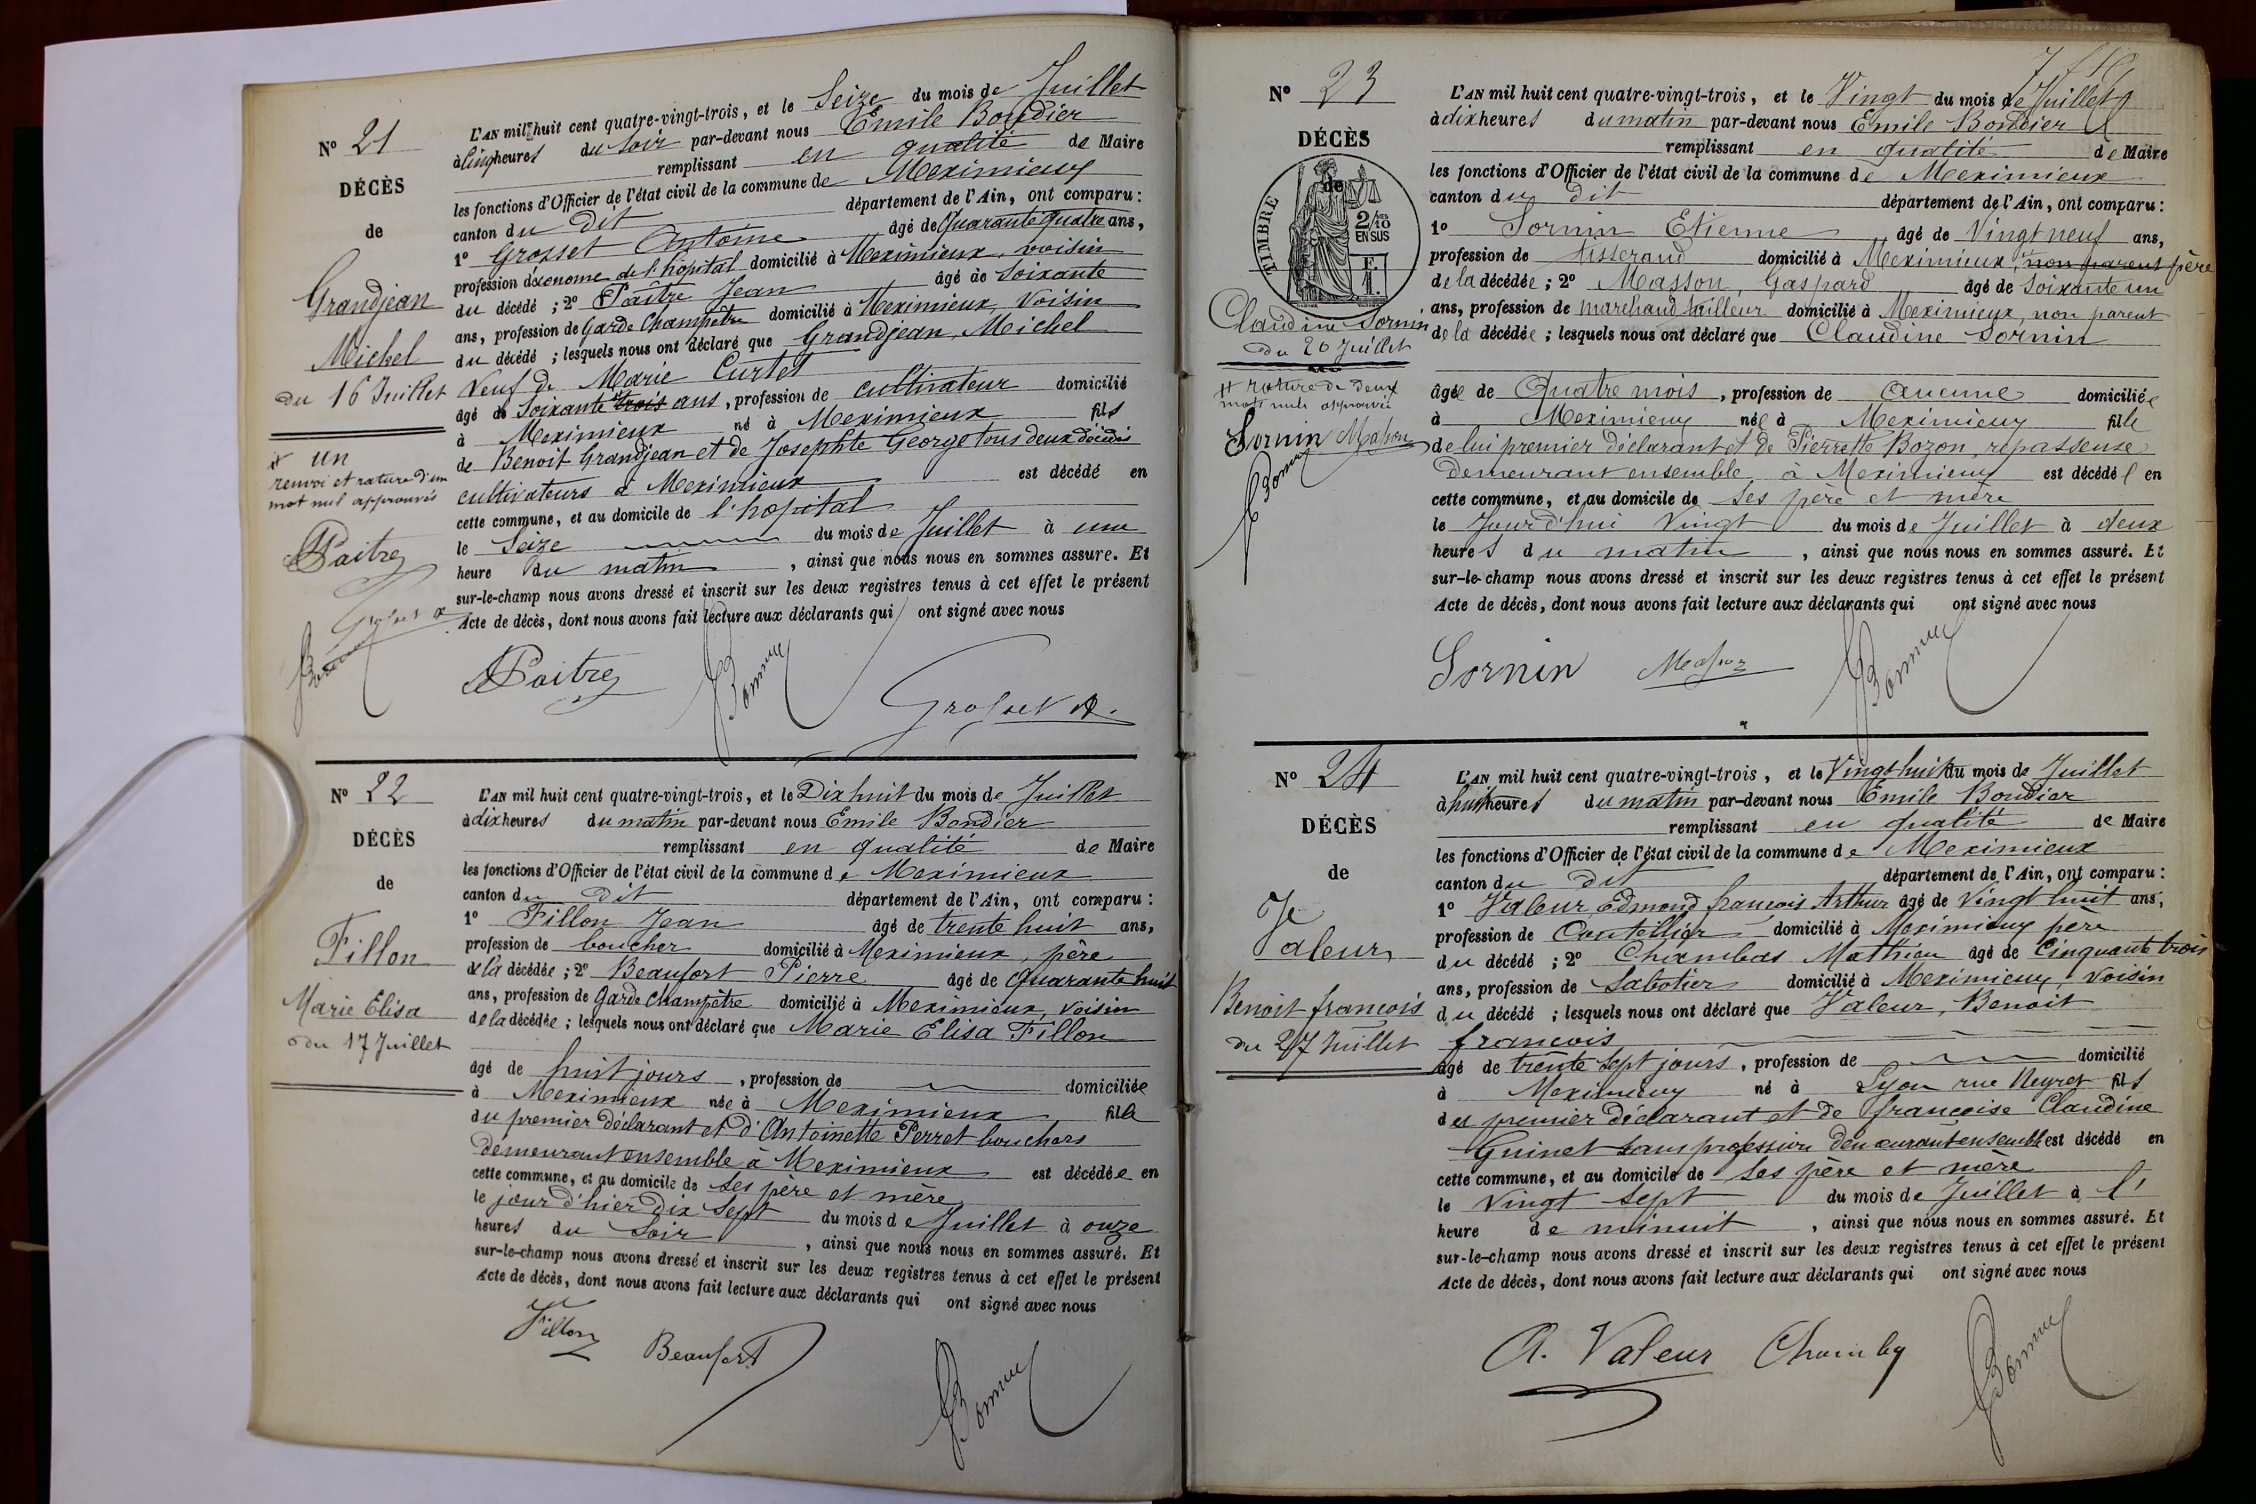 N° 21
DÉCÈS
de
Grandjean
Michel
du 16 Juillet
un
renvoi et rature d'un
mot nul approuvés
Paitre
Grosset A
L'AN mil huit cent quatre-vingt-trois, et le Seize du mois de Juillet
à Cinq heures du soir par-devant nous Emile Bondier
remplissant en qualité de Maire
les fonctions d'Officier de l'état civil de la commune de Meximieux
canton du dit département de l'Ain, ont comparu :
1° Grosset Antoine âgé de Quarante quatre ans,
profession d'économe de l'hôpital domicilié à Meximieux, voisin
du décédé ; 2° Paitre Jean âgé de Soixante
ans, profession de Garde Champêtre domicilié à Meximieux, Voisin
du décédé ; lesquels nous ont déclaré que Grandjean, Michel
Veuf de Marie Curtet
âgé de Soixante trois ans, profession de cultivateur domicilié
à Meximieux né à Meximieux fils
de Benoit Grandjean et de Josephte George tous deux décédés
cultivateurs à Meximieux est décédé en
cette commune, et au domicile de l'hopital
le Seize du mois de Juillet à une
heure du matin, ainsi que nous nous en sommes assuré. Et
sur-le-champ nous avons dressé et inscrit sur les deux registres tenus à cet effet le présent
Acte de décès, dont nous avons fait lecture aux déclarants qui ont signé avec nous
Paitre
Grosset A.
N° 22
DÉCÈS
de
Fillon
Marie Elisa
du 17 Juillet
L'AN mil huit cent quatre-vingt-trois, et le Dix huit du mois de Juillet
à dix heures du matin par-devant nous Emile Bondier
remplissant en qualité de Maire
les fonctions d'Officier de l'état civil de la commune de Meximieux
canton du dit département de l'Ain, ont comparu :
1° Fillon Jean âgé de trente huit ans,
profession de boucher domicilié à Meximieux, père
de la décédée ; 2° Beaufort Pierre âgé de Quarante huit
ans, profession de Garde Champêtre domicilié à Meximieux, Voisin
de la décédée ; lesquels nous ont déclaré que Marie Elisa Fillon
âgé de huit jours, profession de domiciliée
à Meximieux née à Meximieux fille
du premier déclarant et d'Antoinette Perret bouchers
demeurant ensemble à Meximieux est décédée en
cette commune, et au domicile de ses père et mère
le jour d'hier dix sept du mois de Juillet à onze
heures du Soir, ainsi que nous nous en sommes assuré. Et
sur-le-champ nous avons dressé et inscrit sur les deux registres tenus à cet effet le présent
Acte de décès, dont nous avons fait lecture aux déclarants qui ont signé avec nous
Fillon
Beaufort
N° 23
DÉCÈS
de
TIMBRE
2/10
EN SUS
Claudine Sornin
du 20 Juillet
rature de deux
mots nuls approuvée
Sornin Masson
L'AN mil huit cent quatre-vingt-trois, et le Vingt du mois de Juillet
à dix heures du matin par-devant nous Emile Bondier
remplissant en qualité de Maire
les fonctions d'Officier de l'état civil de la commune de Meximieux
canton du dit département de l'Ain, ont comparu :
1° Sornin Etienne âgé de Vingt neuf ans,
profession de tisserand domicilié à Meximieux, non parent père
de la décédée ; 2° Masson Gaspard âgé de Soixante un
ans, profession de marchand tailleur domicilié à Meximieux, non parent
de la décédée ; lesquels nous ont déclaré que Claudine Sornin
âgée de Quatre mois, profession de aucune domiciliée
à Meximieux née à Meximieux fille
de lui premier déclarant et de Pierrette Bozon, repasseuse
demeurant ensemble à Meximieux est décédée en
cette commune, et au domicile de ses père et mère
le Jourd'hui Vingt du mois de Juillet à deux
heures du matin, ainsi que nous nous en sommes assuré. Et
sur-le-champ nous avons dressé et inscrit sur les deux registres tenus à cet effet le présent
Acte de décès, dont nous avons fait lecture aux déclarants qui ont signé avec nous
Sornin Masson
N° 24
DÉCÈS
de
Valeur
Benoit francois
du 27 Juillet
L'AN mil huit cent quatre-vingt-trois, et le Vingt huit du mois de Juillet
à huit heures du matin par-devant nous Emile Bondier
remplissant en qualité de Maire
les fonctions d'Officier de l'état civil de la commune de Meximieux
canton du dit département de l'Ain, ont comparu :
1° Valeur Edmond françois Arthur âgé de Vingt huit ans,
profession de Coutellier domicilié à Meximieux père
du décédé ; 2° Chambas Mathieu âgé de Cinquante trois
ans, profession de Sabotier domicilié à Meximieux, Voisin
du décédé ; lesquels nous ont déclaré que Valeur, Benoit
francois
âgé de trente sept jours, profession de domicilié
à Meximieux né à Lyon rue Neyret fils
du premier déclarant et de françoise Claudine
Guinet sans profession demeurant ensemble est décédé en
cette commune, et au domicile de ses père et mère
le Vingt sept du mois de Juillet à l'
heure de minuit, ainsi que nous nous en sommes assuré. Et
sur-le-champ nous avons dressé et inscrit sur les deux registres tenus à cet effet le présent
Acte de décès, dont nous avons fait lecture aux déclarants qui ont signé avec nous
A. Valeur